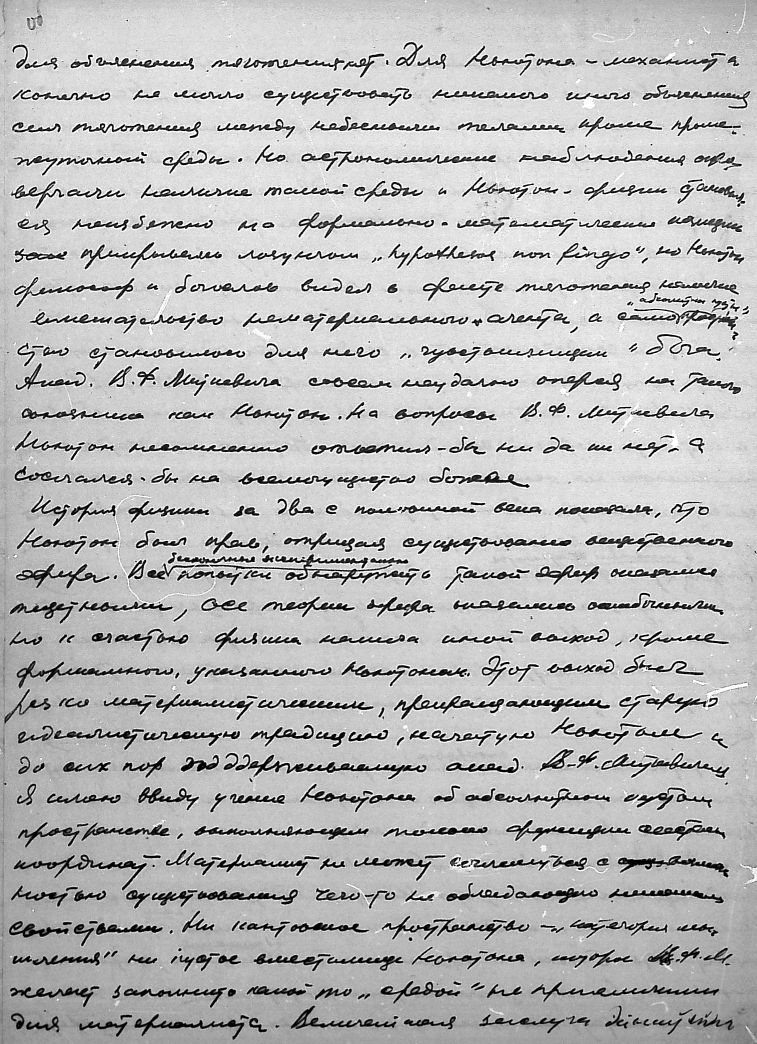 для объяснения тяготения нет. Для Ньютона – механиста
конечно не могло существовать никакого иного объяснения
сил тяготения между небесными телами кроме проме-
жуточной среды. Но астрономические наблюдения опро-
вергали наличие такой среды и Ньютон - физик становил-
ся неизбежно на формально-математические позиции
прикрываясь лозунгом „hypotheses non fingo", но Ньютон
философ и богослов видел в факте тяготения наличие
„абсолютн. пуст."
вмешательство нематериального агента, а
ство становилось для него „чувствилищем" бога.
Акад. В.Ф. Миткевича совсем неудачно оперся на такого
союзника как Ньютон. На вопросы В.Ф. Миткевича
Ньютон несомненно ответил-бы ни да ни нет, а
сослался-бы на всемогущество божье
История физики за два с половиной века показала, что
Ньютон был прав, отрицая существование вещественного
бесконечные экспериментальные
эфира. Все попытки обнаружить такой эфир оказались
тщетными, все теории эфира оказались ошибочными
но к счастью физика нашла иной выход, кроме
формального, указанного Ньютоном. Этот выход был
резко материалистическим, прекращающим старую
идеалистическую традицию, начатую Ньютоном и
до сих пор поддерживаемую акад. В.Ф. Миткевичем
Я имею ввиду учение Ньютона об абсолютном пустом
пространстве, выполняющем только функции системы
координат. Материалист не может согласиться с
ностью существования чего-то не обладающего никакими
свойствами. Ни кантовское пространство – „категория мы-
шления" ни пустое вместилище Ньютона, которое В.Ф.М.
желает заполнить какой то „средой" не приемлемы
для материалиста. Величайшая заслуга Эйнштейна